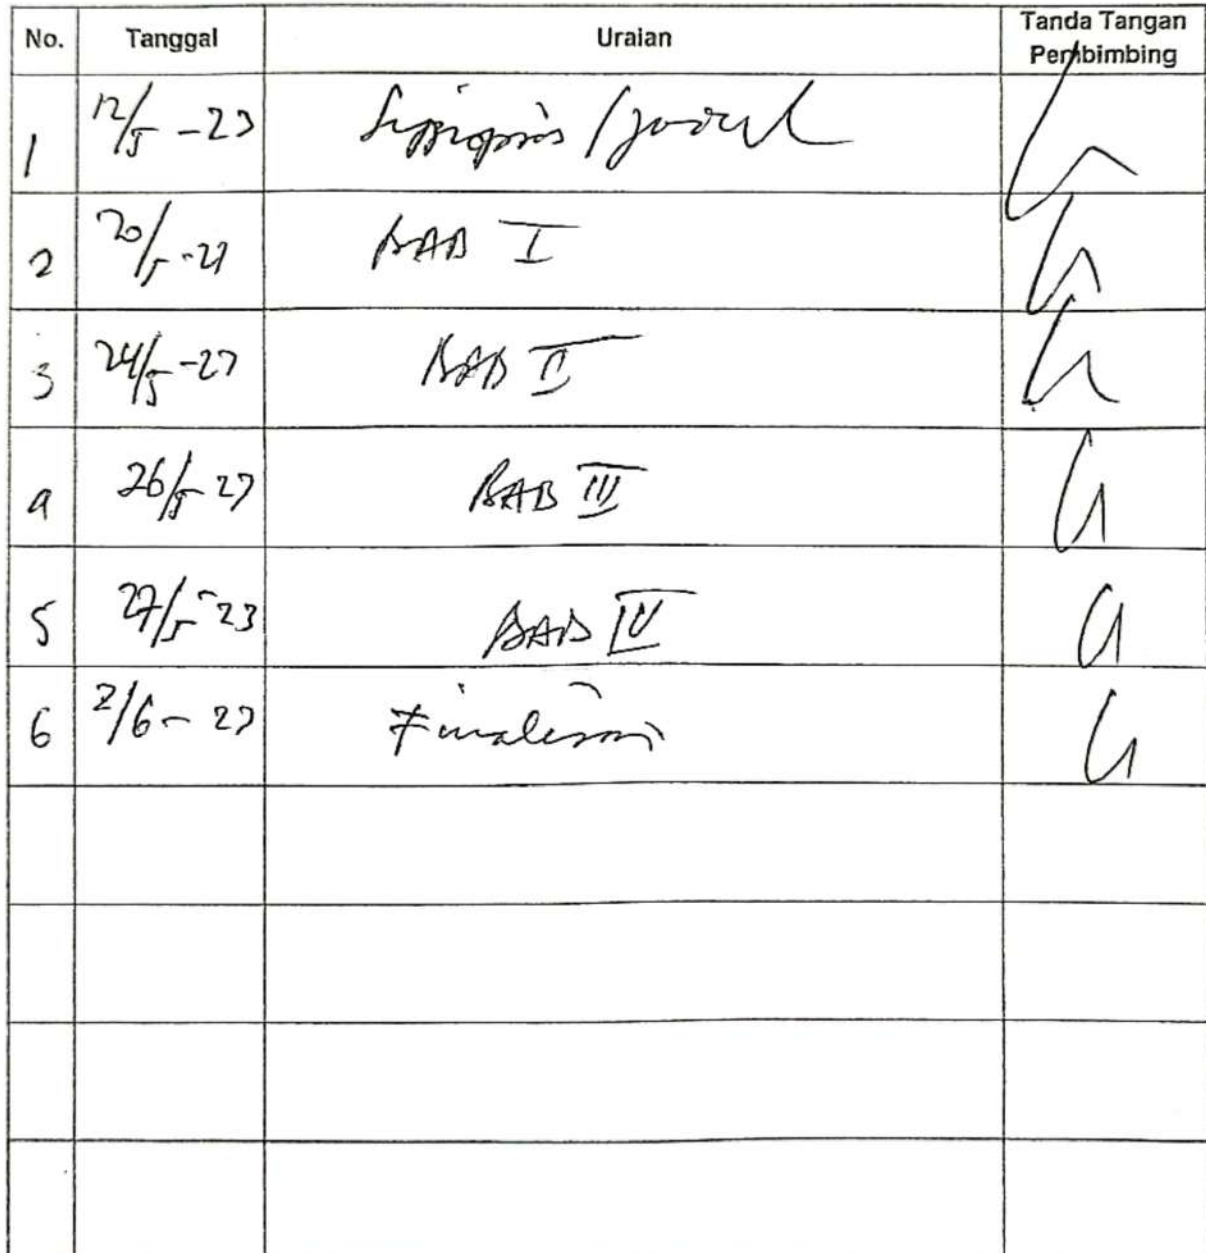 No. Tanggal Uraian Tanda Tangan Pembimbing
1 12/5 - 23 Sinopsis / Judul
2 20/5 - 23 BAB I
3 24/5 - 23 BAB II
4 26/5 - 23 BAB III
5 27/5 - 23 BAB IV
6 2/6 - 23 Finalisasi